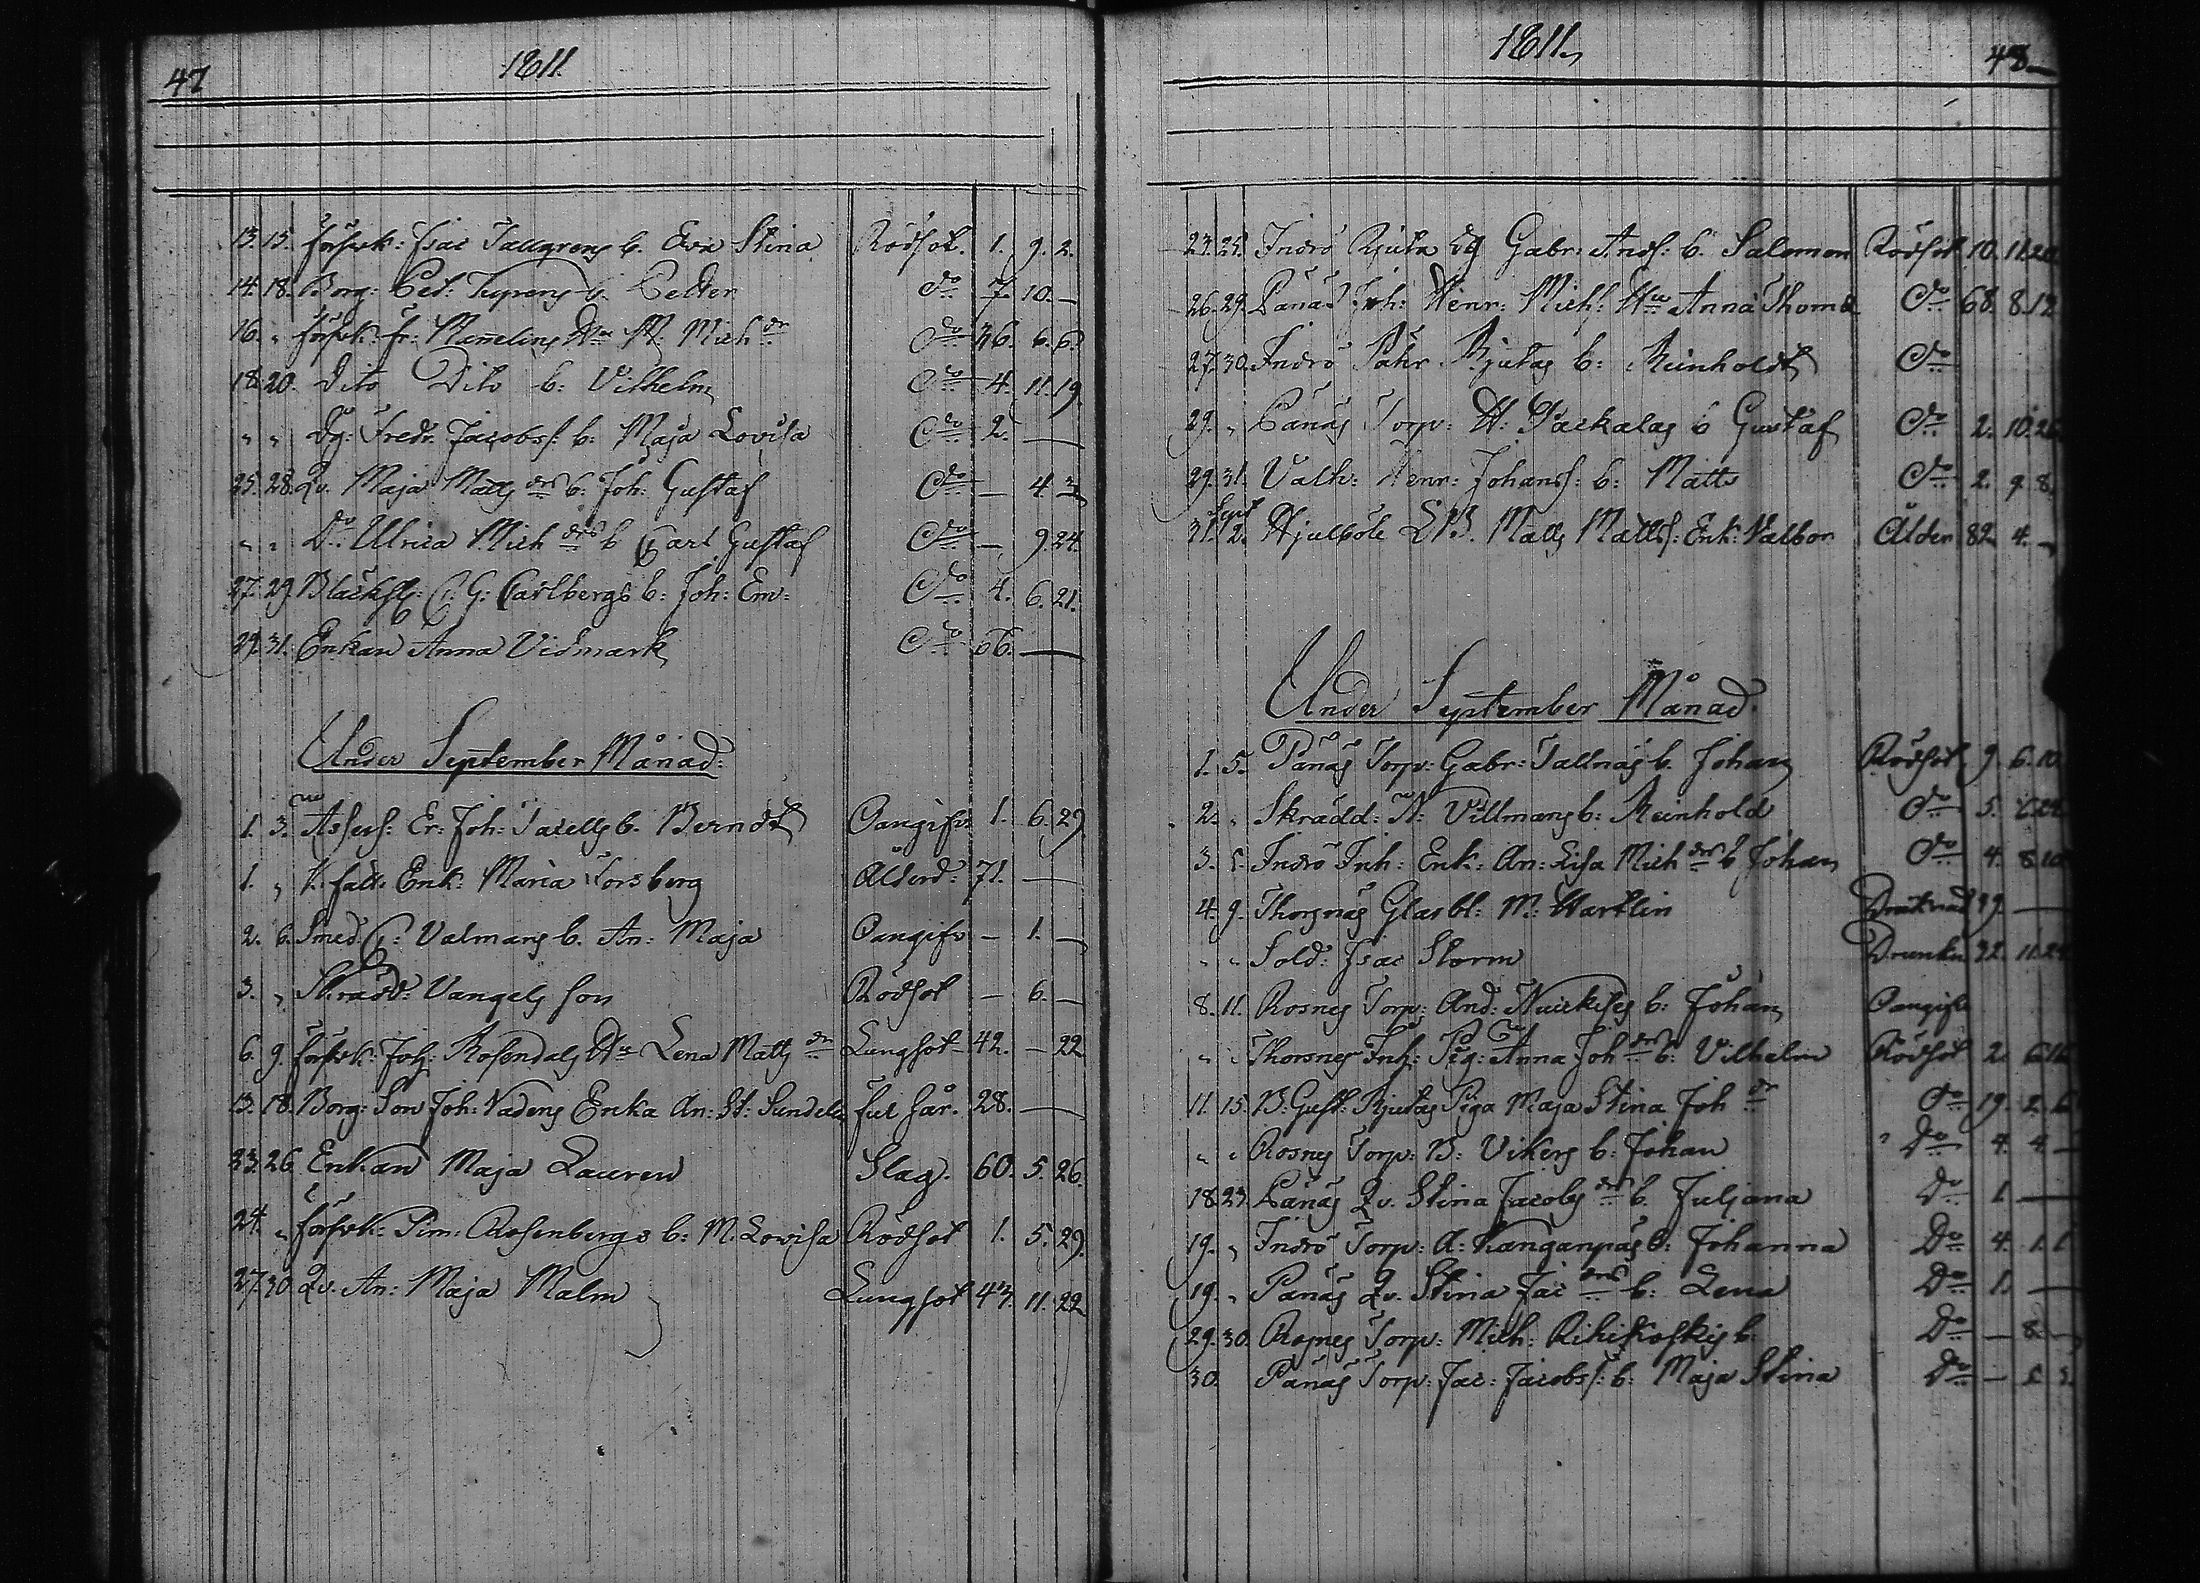 47
1811.
13. 15. förfrk: Isac Tallgrens b. Eva Stina Rödsot. 1. 9. 2.
14. 18. Borg: Pet: b. Petter do 7. 10. —
16. " förfrk: Fr: Hru M: Mich dr do 36. 6. 6.
18. 20. Dito Dito b: Vilhelm do 4. 11. 19.
" " Dg: Fredr: Jacobss: b: Maja Lovisa do 2. —
25. 28. Qv. Maja Matts drs b: Joh: Gustaf do — 4. 3
" " Do Ulrica Mich drs b Carl Gustaf do — 9. 24.
27. 29. C: G: Carlbergs b: Joh: Em: do 4. 6. 21.
29. 31. Enkan Anna Vidmark do 66. —
Under September Månad:
1. 3. Assess: Er: Joh: b. Berndt Oangifv 1. 6. 29.
1. " Enk: Maria Forsberg Ålderd: 71. —
2. 6. Smed. C: Valmans b. An: Maja Oangifv — 1. —
3. " Skrädd: Vangels son Rödsot — 6. —
6. 9. förfrk: Joh: Rosendals Hu Lena Matts dr Lungsot 42. — 22
13. 18. Borg: Son Joh: Vadens Enka An: St: Sundels ful sår. 28. —
23. 26. Enkan Maja Lauren Slag. 60. 5. 26.
24. " förfrk: Sim: Rosenbergs b: M. Lovisa Rödsot 1. 5. 29.
27. 30. Qv. An: Maja Malm Lungsot 43. 11. 22
1811.
48
23. 25. Indrö Rjuta Dg Gabr: Ands: b. Salomon Rödsot 10. 11. 20
26. 29. Panäs Inh: Henr: Michs Hu Anna Thomæ do 68. 8. 12
27. 30. Indrö Rjutas b: Reinholdt do
29. " Panäs Torp: H: Packalas b Gustaf do 2. 10.
29. 31. Valh: Henr: Johanss: b: Matts do 2. 9. 8.
31. Sept 2. Hjulböle Matts Mattss: Enk: Valbor Ålder 82 4. —
Under September Månad.
1. 5. Panäs Torp: Gabr: Tallnäs b. Johan Rödsot 9. 6. 10
2. " Skrädd: N: Villmans b: Reinhold do 5.
3. 5. Indrö Inh: Enk: An: Lisa Mich drs b Johan do 4. 8. 10
4. 9. Thorsnäs Glasbl: M: Hartlin —
" " Sold: Isac Storm 32. 11.
8. 11. Rosnes Torp: And: b: Johan Oangifv
" " Thorsnes Inh: Pig: Anna Joh drs b: Vilhelm Rödsot 2.
11. 15. B: Gust: Rjutas Piga Maja Stina Joh dr do 19. 2. 6
" " Rosnes Torp: B: Vikers b: Johan Do 4. 4. —
18. 23. Panäs Qv. Stina Jacobs drs b. Juljana Do 1 —
19. " Indrö Torp: A: Kanganpäs b: Johanna Do 4. 1. 1
19. " Panäs Qv. Stina Jac drs b: Lena Do 1. —
29. 30. Rosnes Torp: Mich: b. Do — 8. —
30. Panäs Torp: Jac: Jacobss: b: Maja Stina Do —